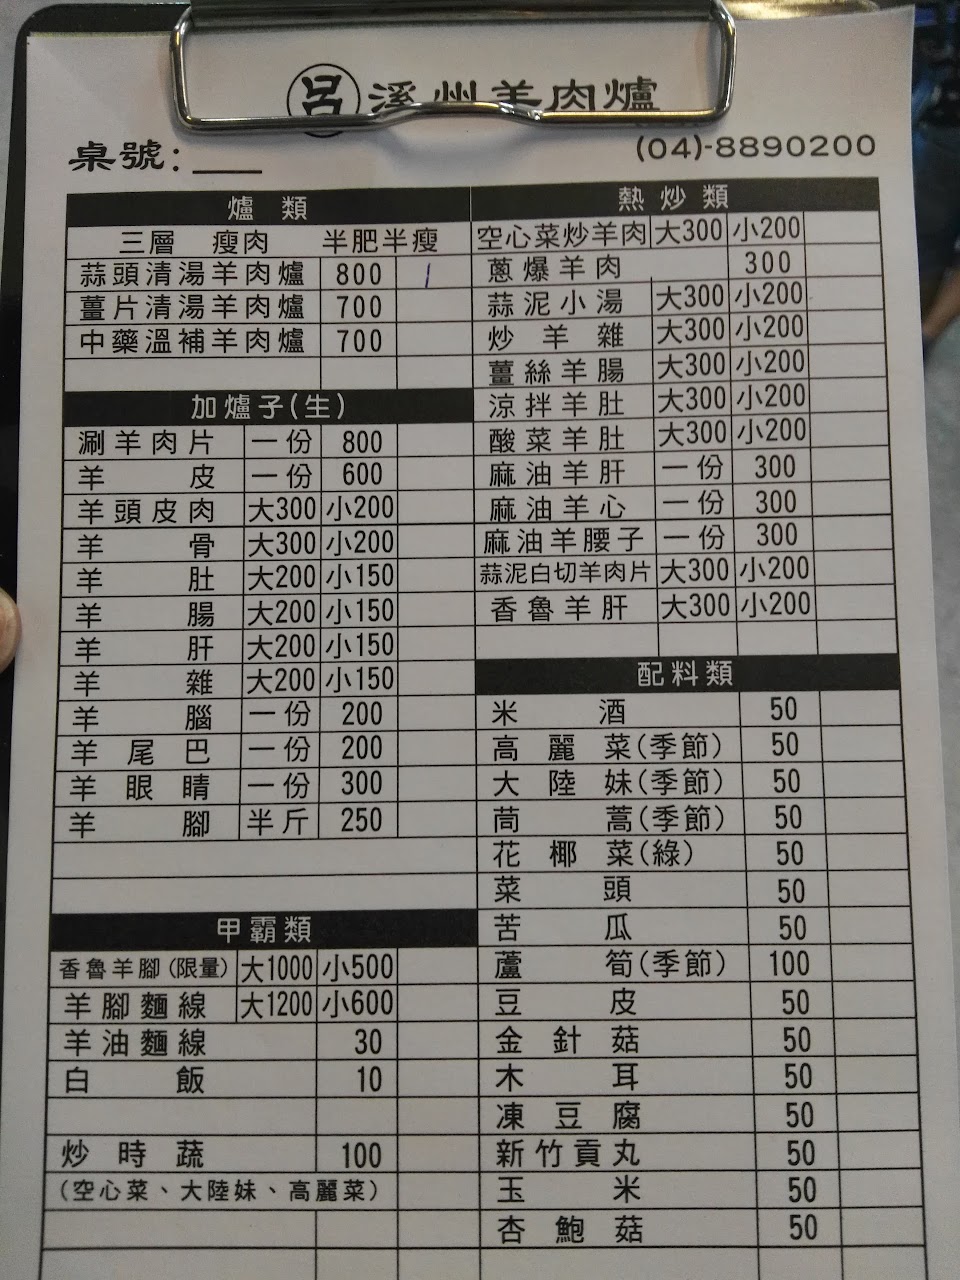 呂 溪州羊肉爐
桌號：
(04)-8890200
爐類
三層 瘦肉 半肥半瘦
蒜頭清湯羊肉爐 800 1
薑片清湯羊肉爐 700
中藥溫補羊肉爐 700
加爐子(生)
涮羊肉片 一份 800
羊皮 一份 600
羊頭皮肉 大300 小200
羊骨 大300 小200
羊肚 大200 小150
羊腸 大200 小150
羊肝 大200 小150
羊雜 大200 小150
羊腦 一份 200
羊尾巴 一份 200
羊眼睛 一份 300
羊腳 半斤 250
甲霸類
香魯羊腳(限量) 大1000 小500
羊腳麵線 大1200 小600
羊油麵線 30
白飯 10
炒時蔬 100
(空心菜、大陸妹、高麗菜)
熱炒類
空心菜炒羊肉 大300 小200
蔥爆羊肉 300
蒜泥小湯 大300 小200
炒羊雜 大300 小200
薑絲羊腸 大300 小200
涼拌羊肚 大300 小200
酸菜羊肚 大300 小200
麻油羊肝 一份 300
麻油羊心 一份 300
麻油羊腰子 一份 300
蒜泥白切羊肉片 大300 小200
香魯羊肝 大300 小200
配料類
米酒 50
高麗菜(季節) 50
大陸妹(季節) 50
茼蒿(季節) 50
花椰菜(綠) 50
菜頭 50
苦瓜 50
蘆筍(季節) 100
豆皮 50
金針菇 50
木耳 50
凍豆腐 50
新竹貢丸 50
玉米 50
杏鮑菇 50